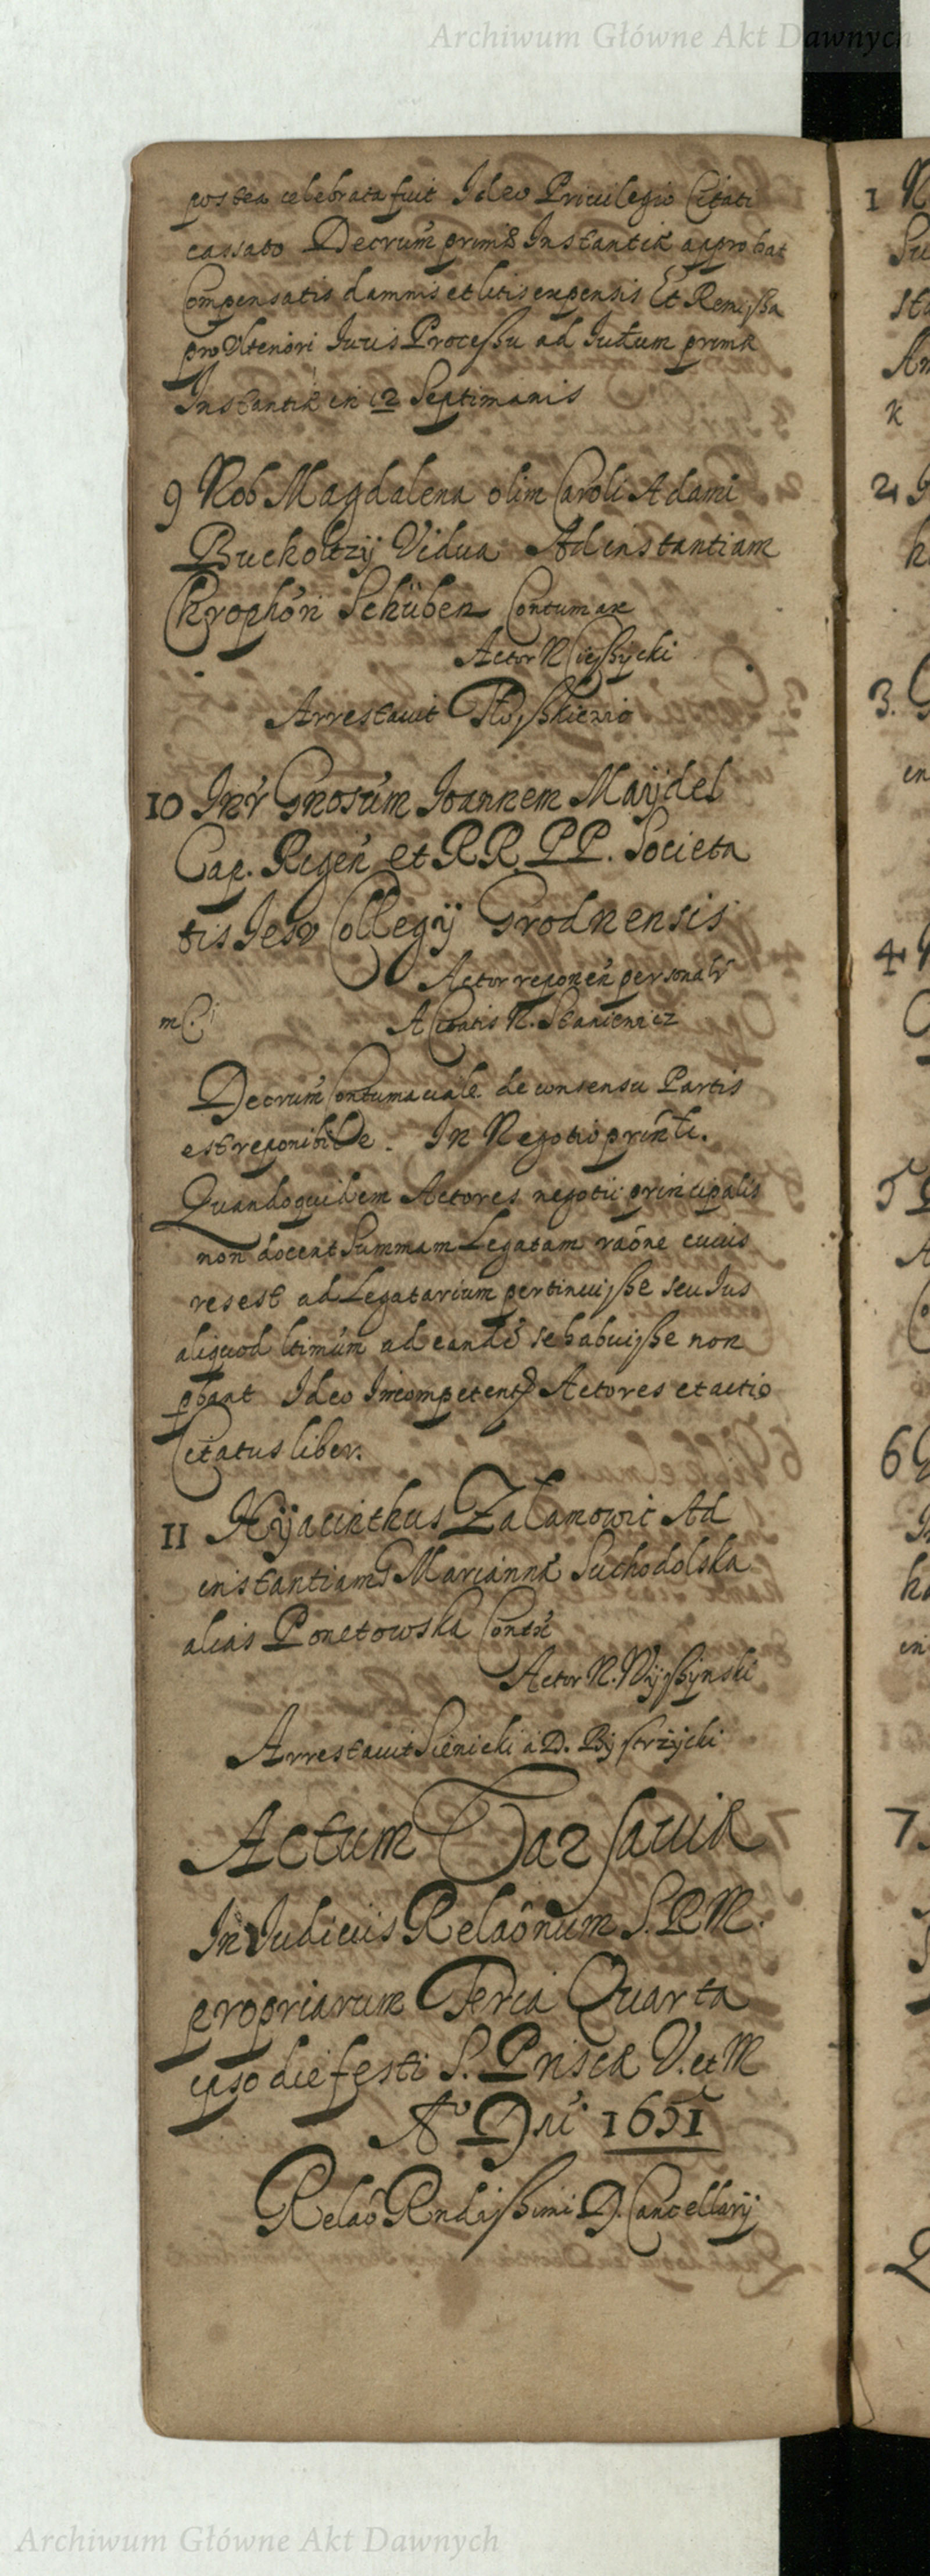 Archiwum Główne Akt Dawnych
postea celebrata fuit Ideo Privilegio Citati
cassato Decrum primæ Instantiæ approbat
Compensatis damnis et litis expensis Et Remissa
pro Ulteriori Iuris Processu ad Iudum primæ
Instantiæ in 12 Septimanis
9 Nob Magdalena olim Caroli Adami
Bucholtzij Vidua Ad instantiam
Schüben Contumax
Actor N
Arrestavit
10 Intr Gnosum Ioannem Maydel
Cap. Rigen et RR. PP. Societa
tis Iesv Collegij Grodnensis
Actor reponen personalr
A Citatis N. Staniewicz
Decrum Contumaciale de consensu Partis
est reponibile. In Negotio prinli.
Quandoquidem Actores negotii principalis
non docent Summam Legatam raône cuius
res est ad Legatarium pertinuisse seu Ius
aliquod ltimum ad eand se habuisse non
pbant Ideo Incompetent Actores et actio
Citatus liber.
11 Hyacinthus Zalanowic Ad
instantiam Mariannæ Suchodolska
alias Ponetowska Contx
Actor N. Wyszynski
Arrestavit Sienicki a D. Bystrzycki
Actum Varsaviæ
In Iudiciis Relaônum S. R. M.
propriarum Feria Quarta
ipso die festi S. Priscæ V. et M
Ao Dni 1651
Relaô Rndissimi D. Cancellarij
1
2
3.
4
5
6
7
Archiwum Główne Akt Dawnych